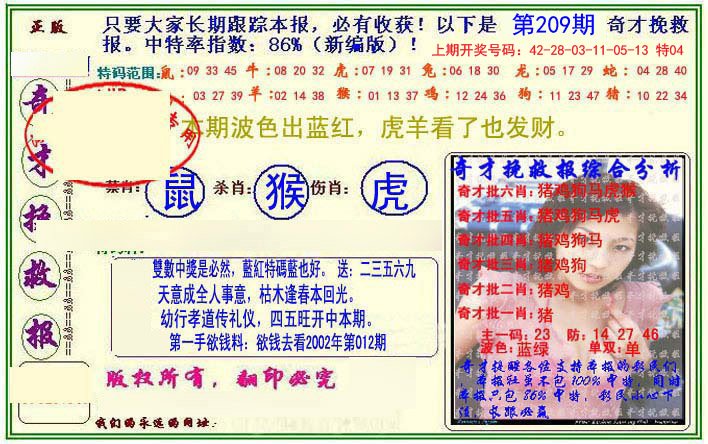 正版
只要大家长期跟踪本报，必有收获！以下是 第209期 奇才挽救
报。中特率指数：86%（新编版）！
上期开奖号码：42-28-03-11-05-13 特04
特码范围：鼠：09 33 45 牛：08 20 32 虎：07 19 31 兔：06 18 30 龙：05 17 29 蛇：04 28 40
03 27 39 羊：02 14 38 猴：01 13 37 鸡：12 24 36 狗：11 23 47 猪：10 22 34
本期波色出蓝红，虎羊看了也发财。
鼠 杀肖：猴 伤肖：虎
奇才挽救报
雙數中獎是必然，藍紅特碼藍也好。 送：二三五六九
天意成全人事意，枯木逢春本回光。
幼行孝道传礼仪，四五旺开中本期。
第一手欲钱料：欲钱去看2002年第012期
版权所有，翻印必究
我们的永远的网址：
奇才挽救报综合分析
奇才批六肖：猪鸡狗马虎猴
奇才批五肖：猪鸡狗马虎
奇才批四肖：猪鸡狗马
奇才批三肖：猪鸡狗
奇才批二肖：猪鸡
奇才批一肖：猪
主一码：23 防：14 27 46
波色：蓝绿 单双：单
奇才挽救各位支持本报的彩民们
，本报社虽不包100%中特，同时
本报只包 86%中特，彩民小心下
注，长跟必赢